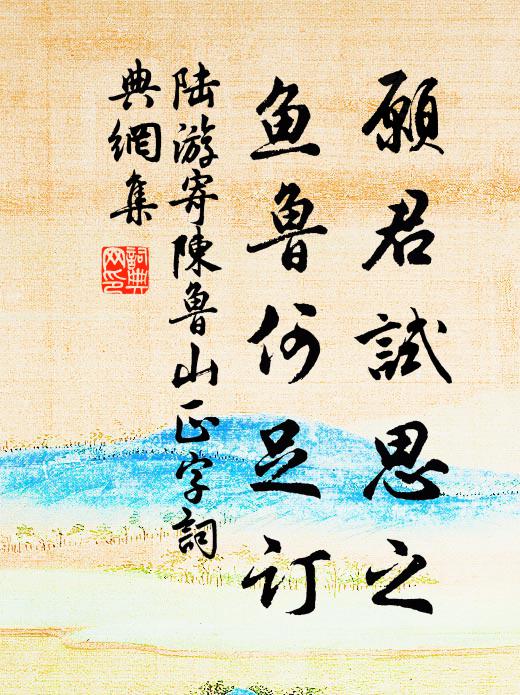 願君試思之
鱼魯何足订
陆游寄陳魯山正字詞
典網集
詞典
网印